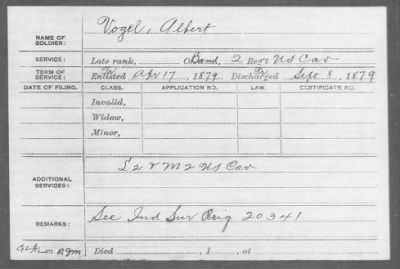 NAME OF SOLDIER: Vogel, Albert
SERVICE: Late rank, Band, 2 Reg't US Cav
TERM OF SERVICE: Enlisted Apr 17, 1879 Discharged Sept 8, 1879
DATE OF FILING. CLASS. APPLICATION NO. LAW. CERTIFICATE NO.
Invalid,
Widow,
Minor,
ADDITIONAL SERVICES: L 2 & M 2 US Cav
REMARKS: See Ind Sur Orig 20341
Died , 1 , at